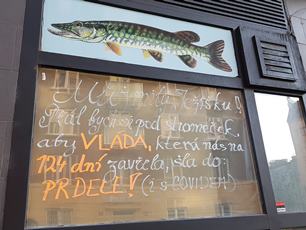 Milý Ježíšku!
Přál bych si pod stromeček,
aby VLÁDA, která nás na
124 dní zavřela, šla do
PRDELE! (i s COVIDEM)